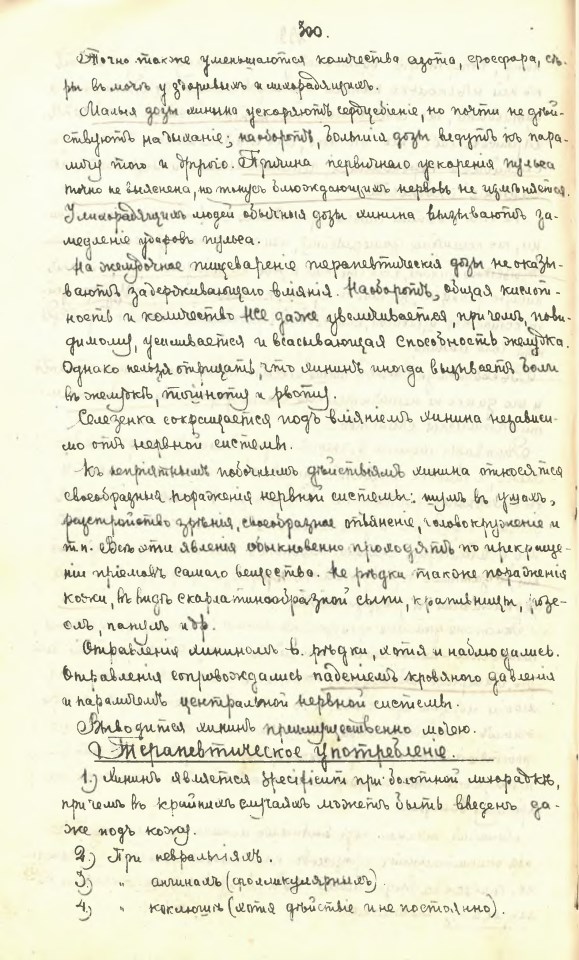 300.
Точно также уменьшаются количества азота, фосфора, сѣ-
ры въ мочѣ у здоровыхъ и лихорадящихъ.
Малыя дозы хинина ускоряютъ сердцебіеніе, но почти не дѣй-
ствуютъ на дыханіе; наоборотъ, большія дозы ведутъ къ пара-
личу того и другого. Причина первичнаго ускоренія пульса
точно не выяснена, но тонусъ блюждающихъ нервовъ не измѣняется.
У лихорадящихъ людей обычныя дозы хинина вызываютъ за-
медленіе ударовъ пульса.
На желудочное пищевареніе терапевтическія дозы не оказы-
ваютъ задерживающаго вліянія. Наоборотъ, общая кислот-
ность и количество HCl даже увеличивается, причемъ, пови-
димому, усиливается и всасывающая способность желудка.
Однако нельзя отрицать, что хининъ иногда вызываетъ боли
въ желудкѣ, тошноту и рвоту.
Селезенка сокращается подъ вліяніемъ хинина независи-
мо отъ нервной системы.
Къ непріятнымъ побочнымъ дѣйствіямъ хинина относятся
своеобразныя пораженія нервной системы: шумъ въ ушахъ,
разстройство зрѣнія, своеобразное опьяненіе, головокруженіе и
т.п. Всѣ эти явленія обыкновенно проходятъ по прекраще-
ніи пріемовъ самаго вещества. Не рѣдки также пораженія
кожи, въ видѣ скарлатинообразной сыпи, крапивницы,
папулъ и др.
Отравленія хининомъ в. рѣдки, хотя и наблюдались.
Отравленія сопровождались паденіемъ кровяного давленія
и параличемъ центральной нервной системы.
Выводится хининъ преимущественно мочею.
Терапевтическое употребленіе.
1.) Хининъ является specificum при болотной лихорадкѣ,
причемъ въ крайнихъ случаяхъ можетъ быть введенъ да-
же подъ кожу.
2.) При невралгіяхъ.
3.) „ ангинахъ (фолликулярныхъ).
4.) „ коклюшѣ (хотя дѣйствіе и не постоянно).